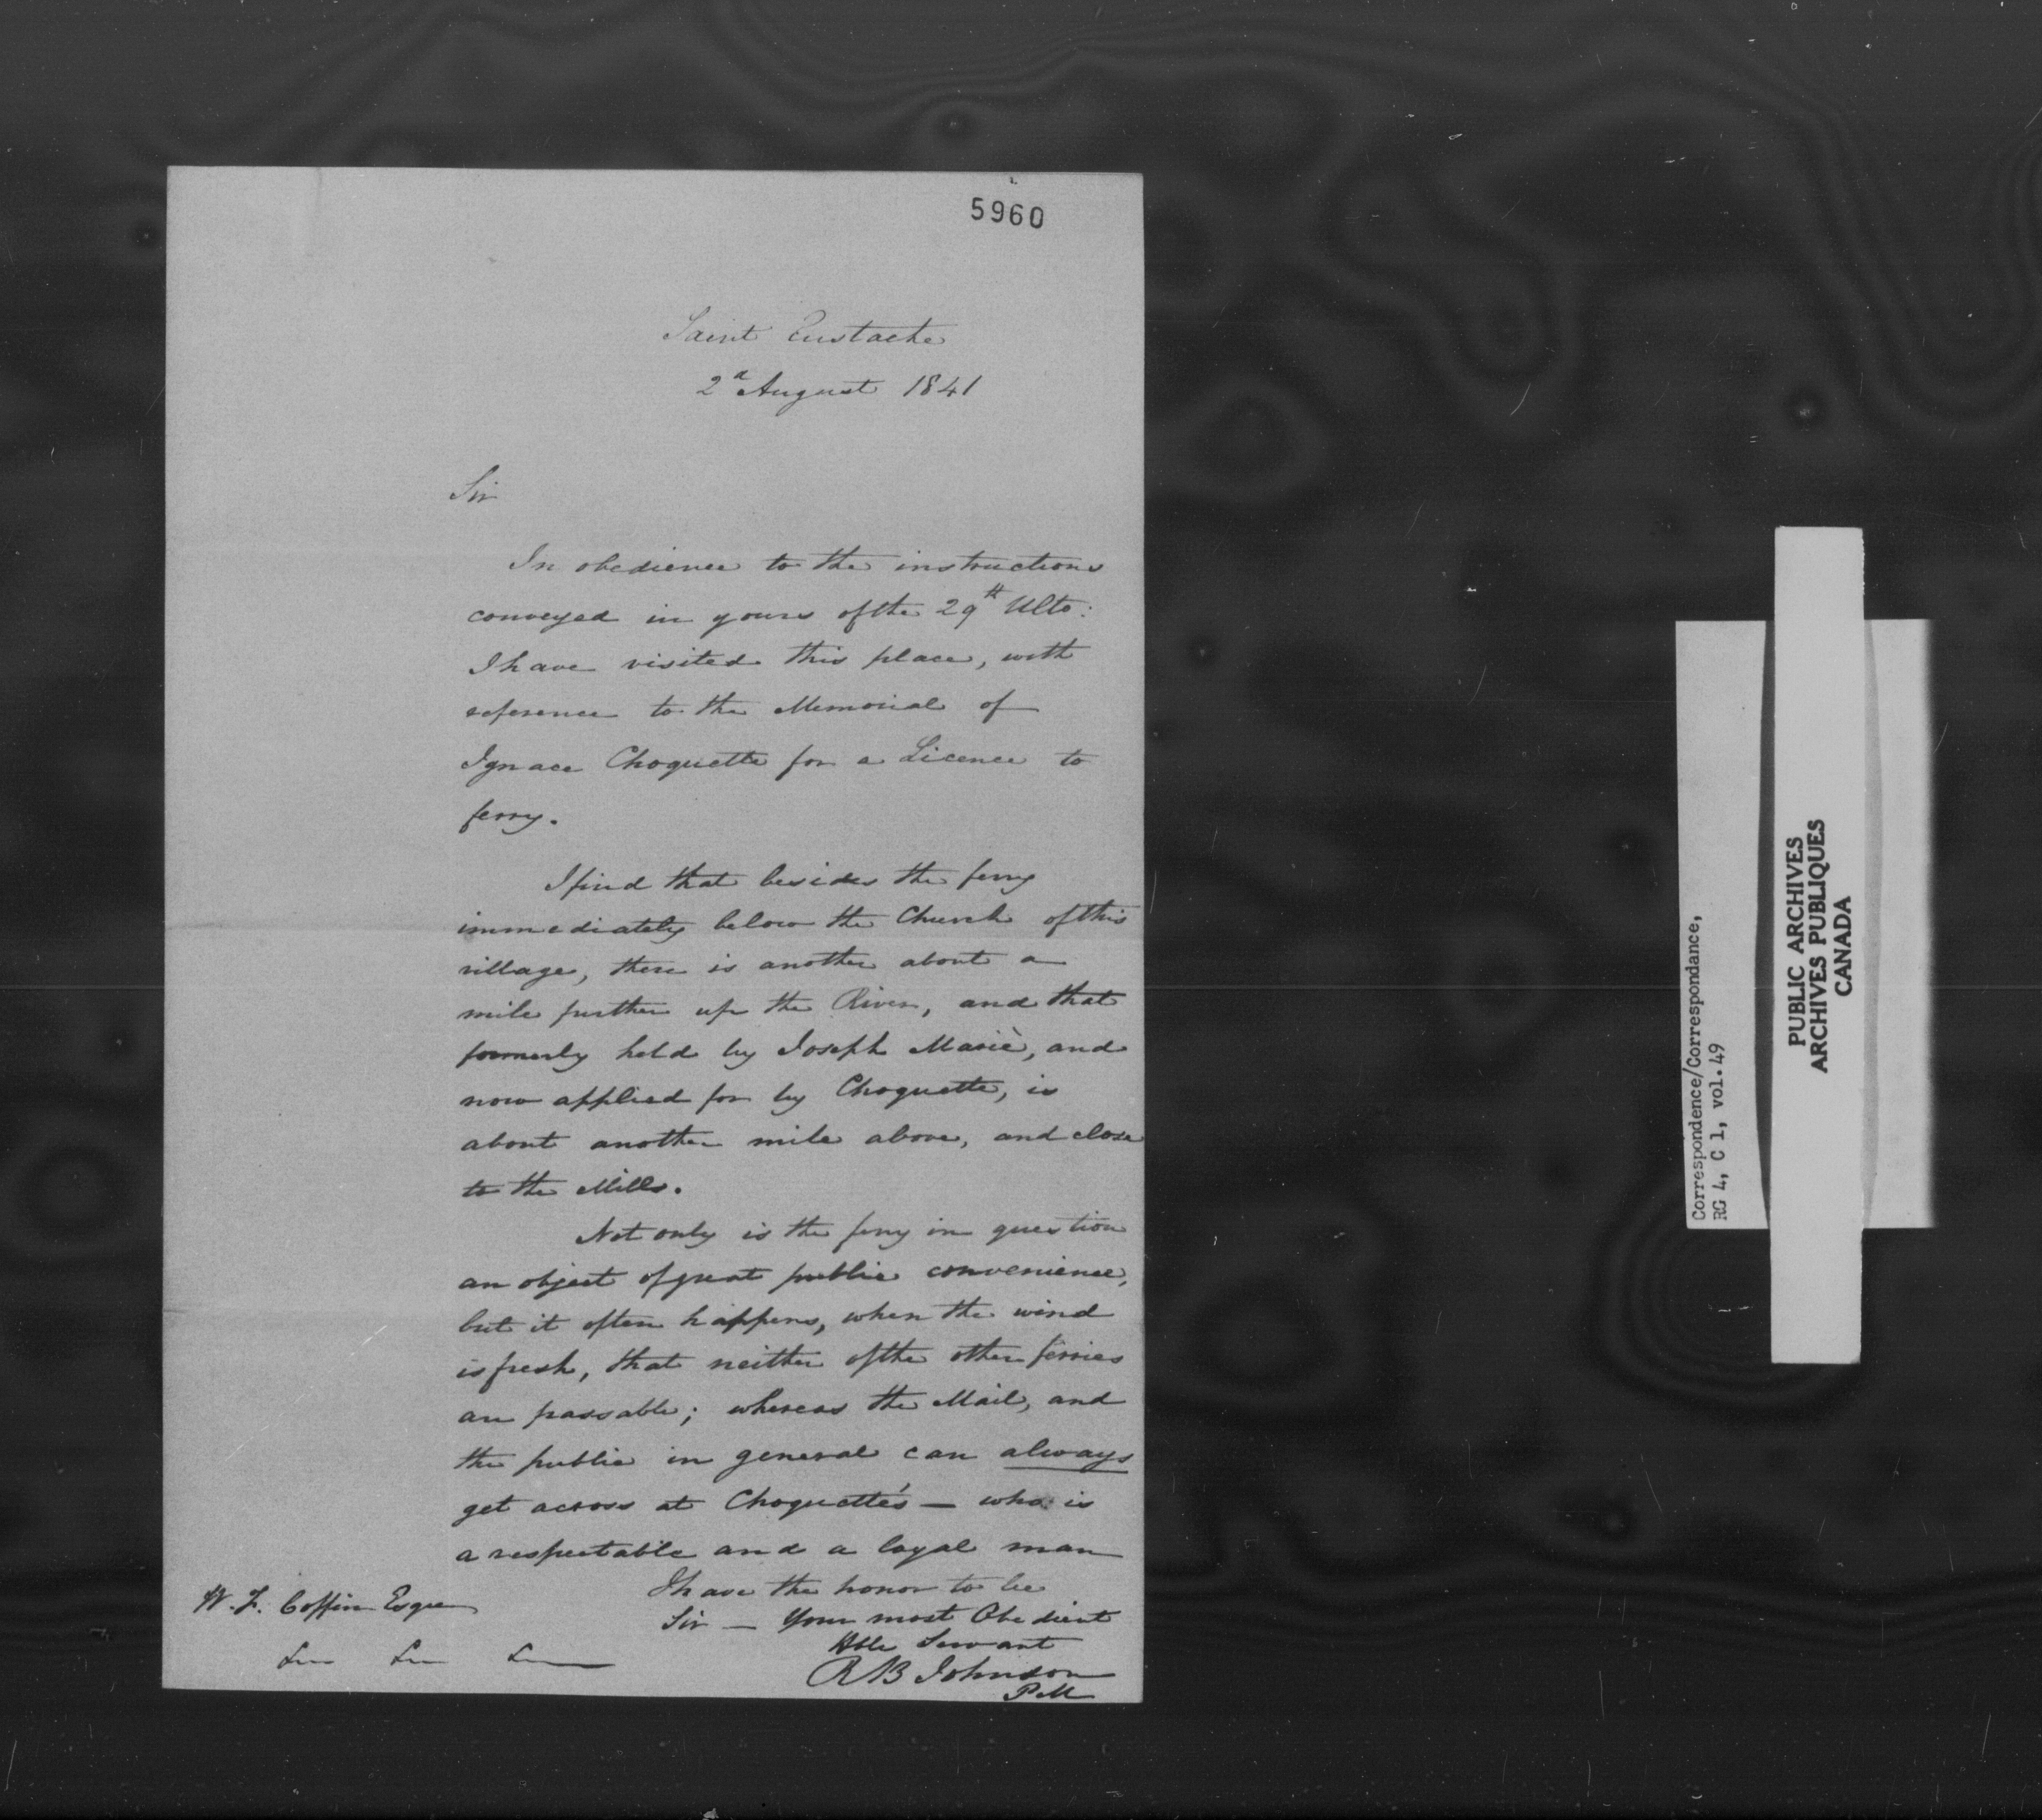 5960
Saint Eustache
2d August 1841
Sir
In obedience to the instructions
conveyed in yours of the 29th Ulto:
I have visited this place, with
reference to the Memorial of
Ignace Choquette for a Licence to
ferry.
I find that besides the ferry
immediately below the Church of this
village, there is another about a
mile further up the River, and that
formerly held by Joseph Mariè, and
now applied for by Choquette, is
about another mile above, and close
to the Mills.
Not only is the ferry in question
an object of great public convenience,
but it often happens, when the wind
is fresh, that neither of the other ferries
are passable; whereas the Mail, and
the public in general can always
get across at Choquette's — who is
a respectable and a loyal man
I have the honor to be
Sir — Your most Obedient
Hble Servant
R B Johnson
P.M
W. F. Coffin Esqre
Correspondence/Correspondance,
RG 4, C 1, vol. 49
PUBLIC ARCHIVES
ARCHIVES PUBLIQUES
CANADA